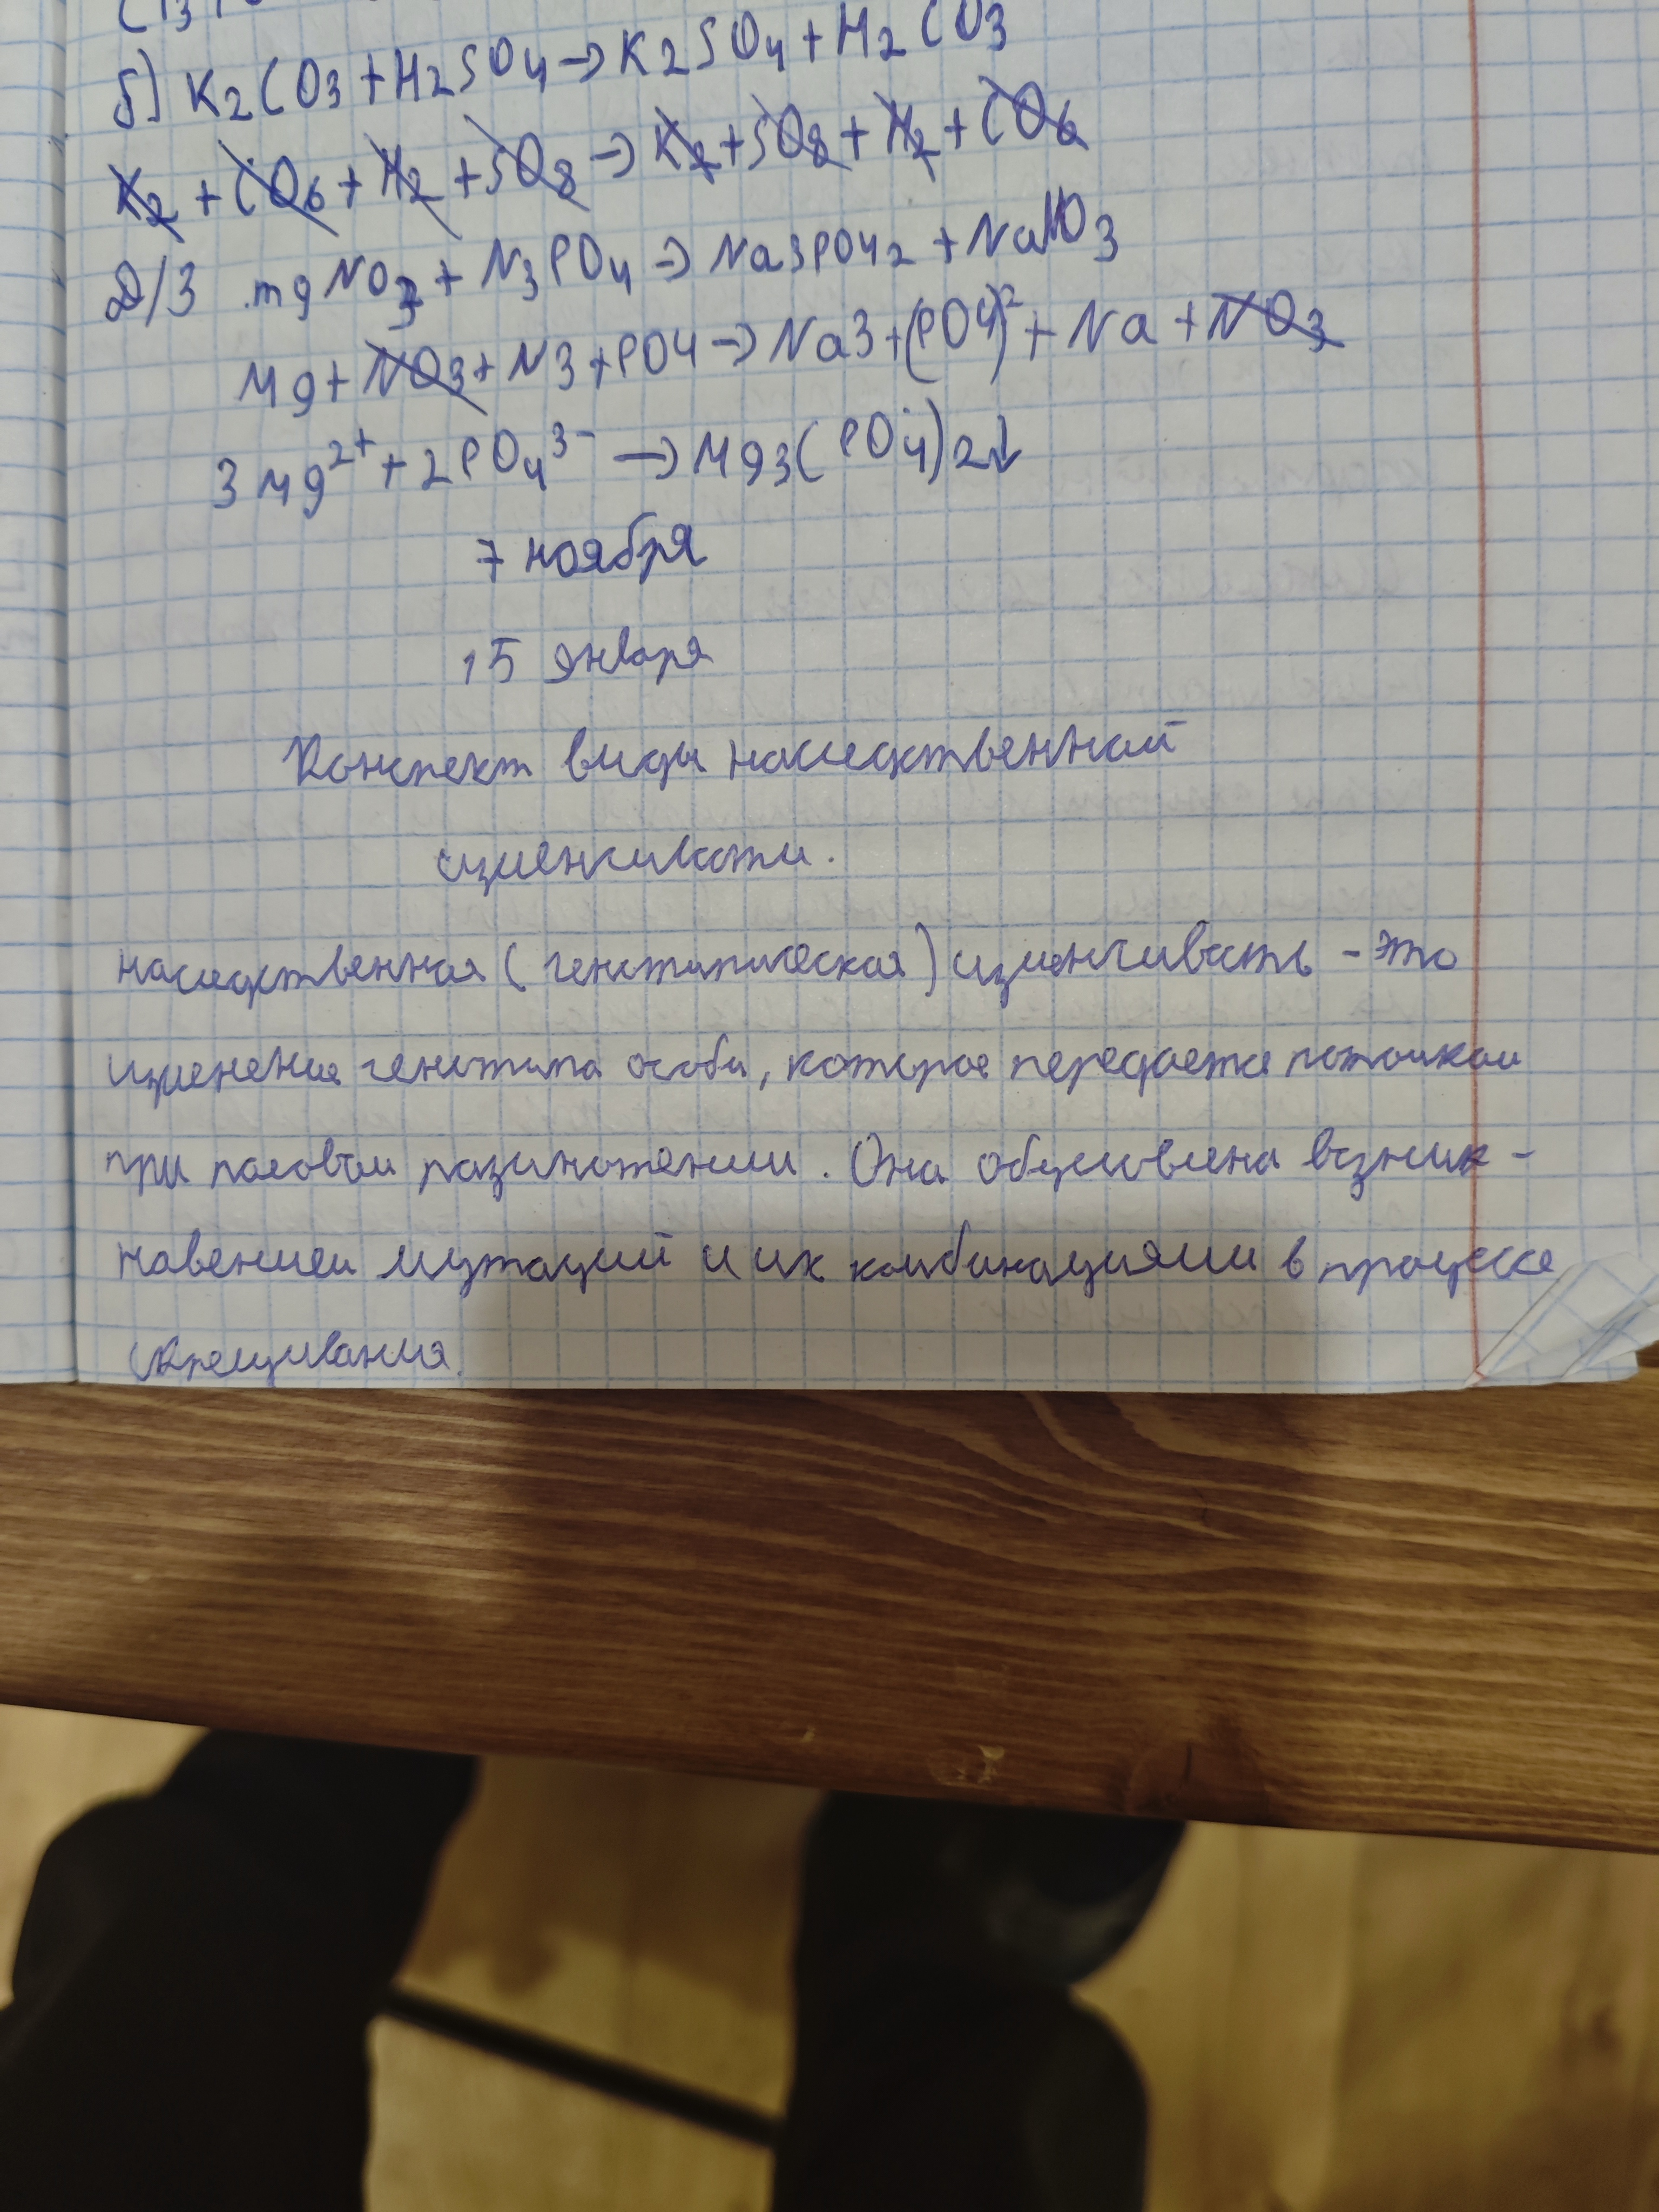 б) K2CO3+H2SO4→K2SO4+H2CO3
K2+CO6+H2+SO8→K2+SO8+H2+CO6
Д/З mgNO3+N3PO4→Na3PO42+NaNO3
Mg+NO3+N3+PO4→Na3+(PO4)²+Na+NO3
3Mg²⁺+2PO4³⁻→Mg3(PO4)2↓
7 ноября
15 января
Конспект виды наследственной
изменчивости.
наследственная (генотипическая) изменчивость - это
изменения генотипа особи, которое передается потомкам
при половом размножении. Она обусловлена возник-
новением мутаций и их комбинациями в процессе
скрещивания.